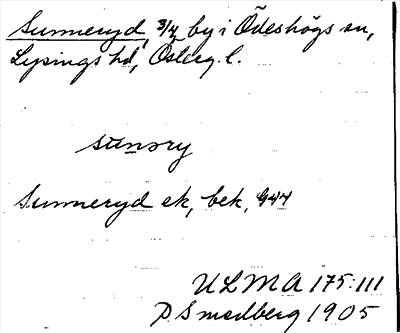 Sunneryd, 3/4 by i Ödeshögs sn,
Lysings hd, Österg. l.
sunəry
Sunneryd ek, bek, G 4 4
ULMA 175:111
P Smedberg 1905